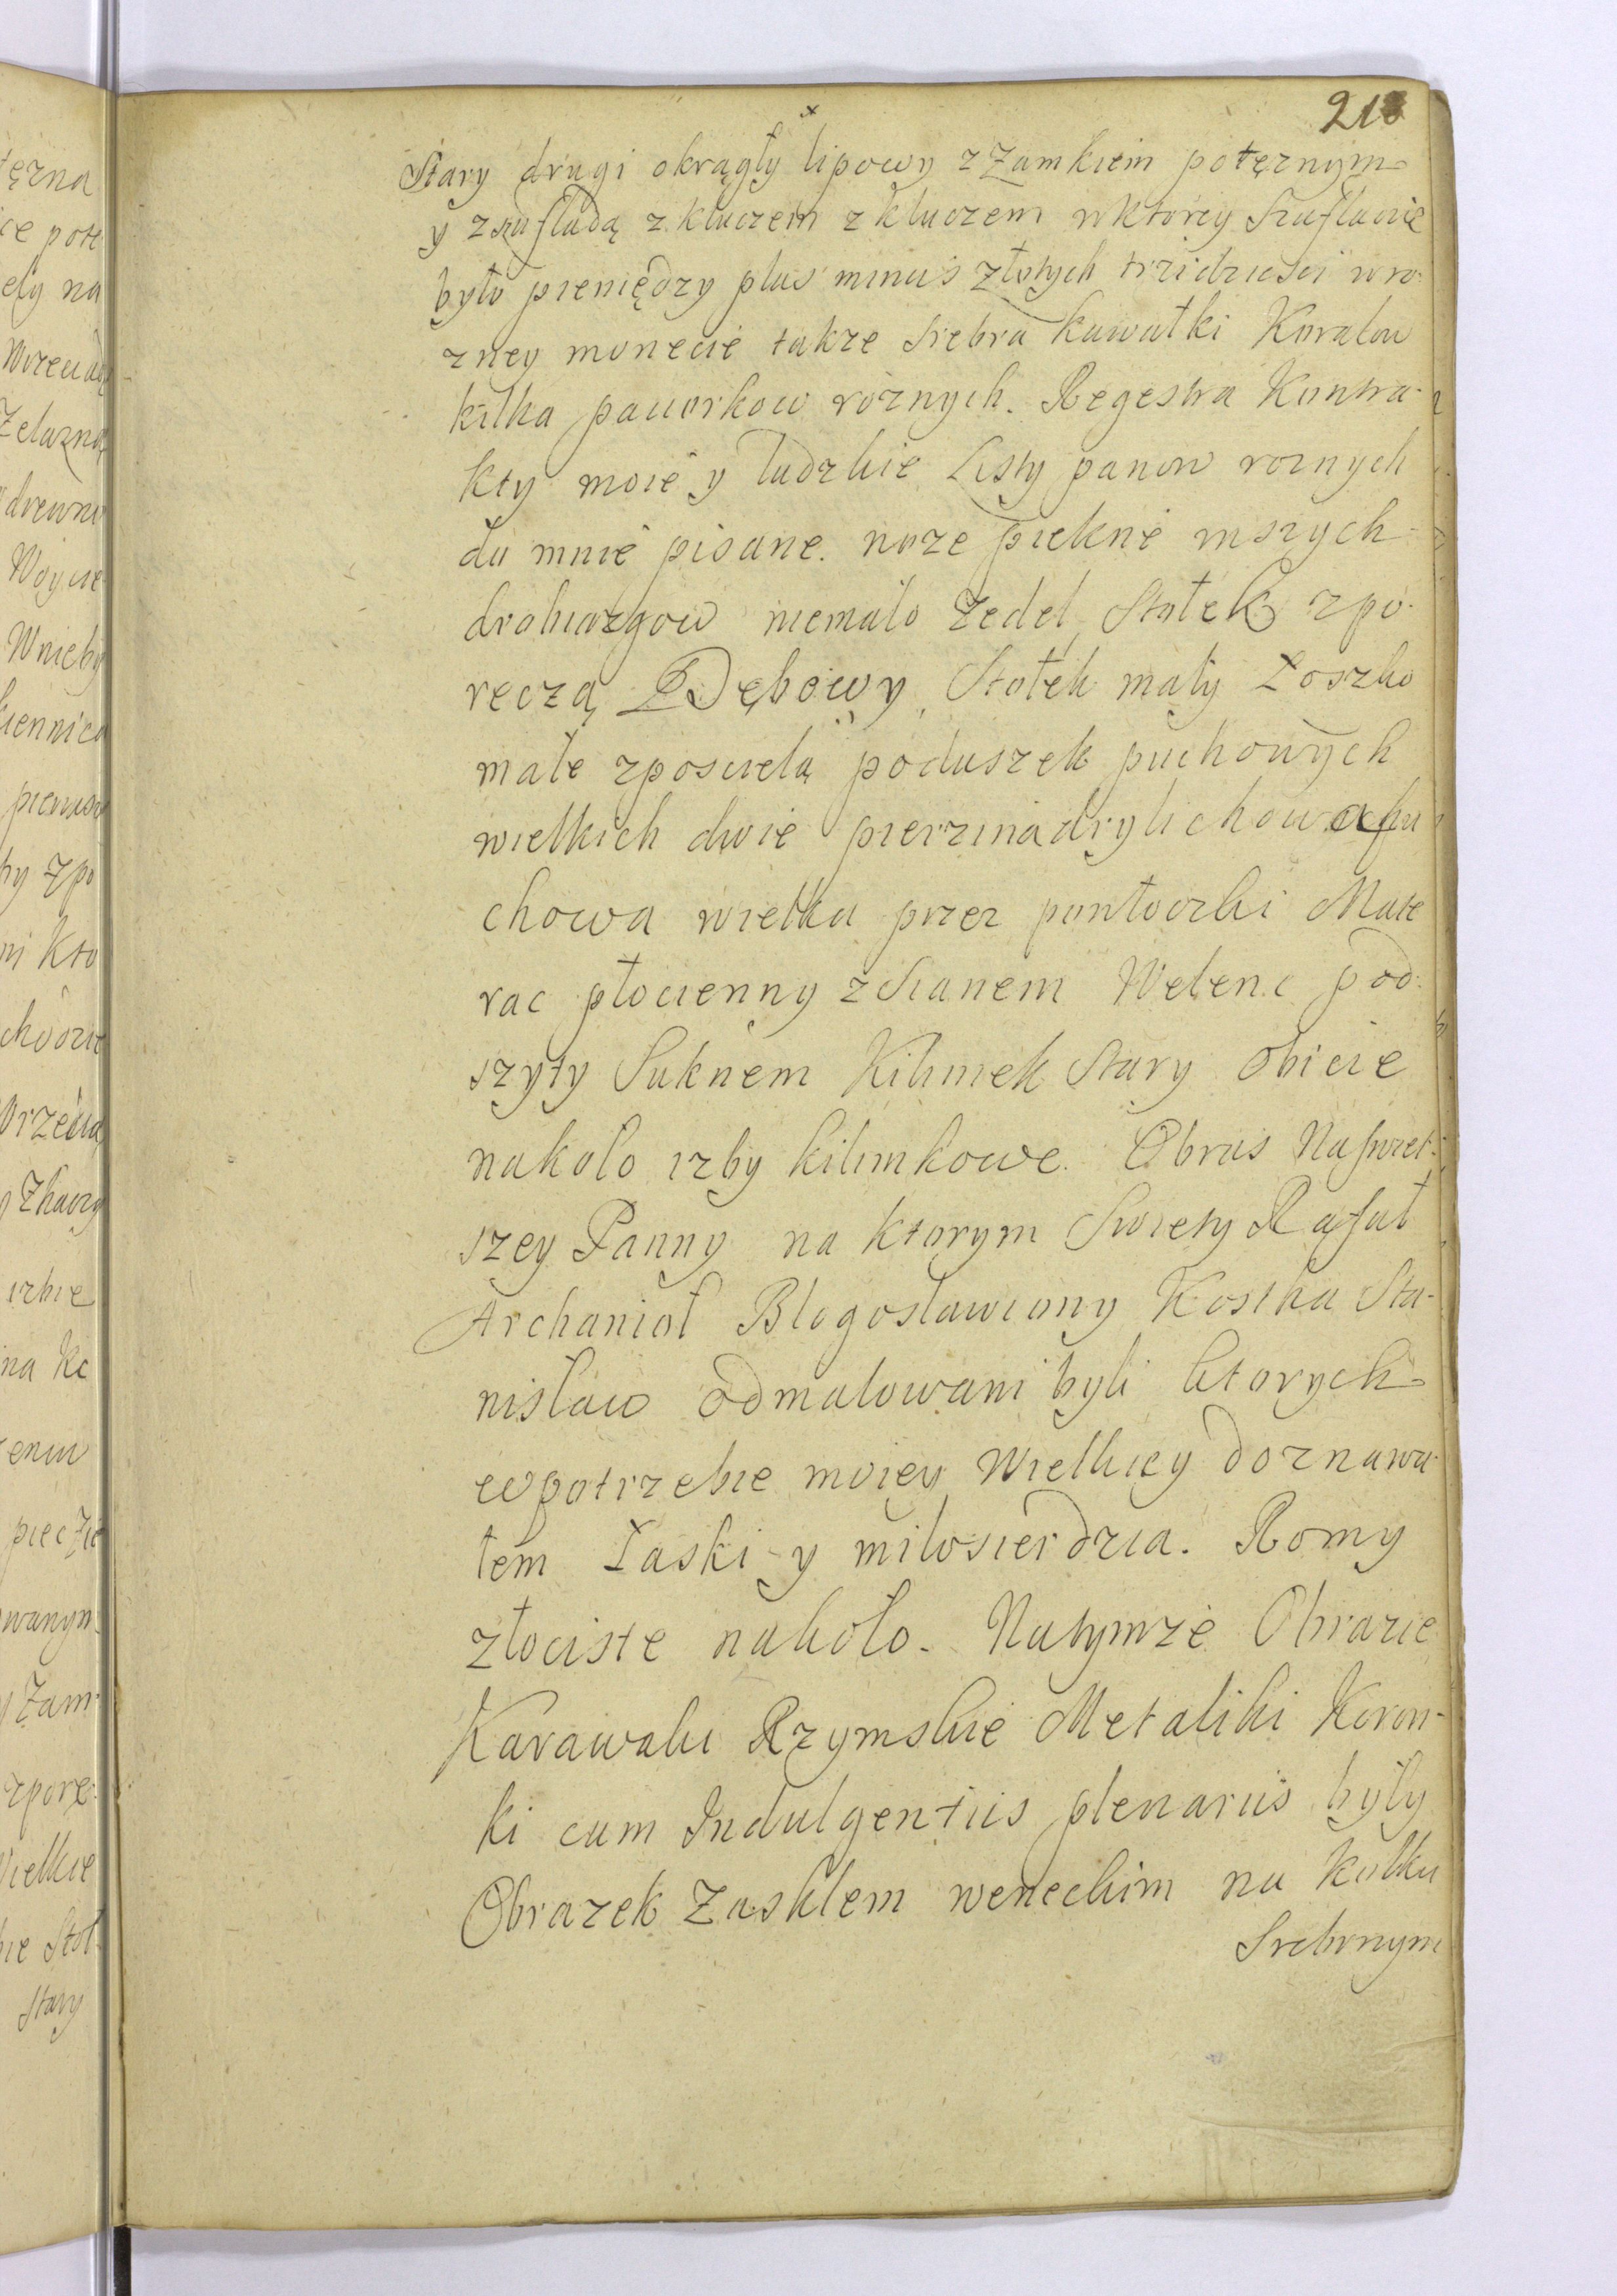 213
Stary drugi okrągły lipowy z Zamkiem potęznym
y z szufladą z kluczem z kluczem w ktorey Szufladzie
było pieniędzy plus minus złotych trzidziesci w ro-
zney monecie takze Srebra kawałki Koralow
kilka paciorkow roznych. Regestra Kontra-
kty moie y ludzkie Listy panow roznych
do mnie pisane. noze piekne inszych
drobiazgow niemało Zedel Stołek z po-
ręczą Dębowy, Stołek mały Łoszko
małe z poscielą poduszek puchowych
wielkich dwie pierzina drylichowa pu
chowa wielka przez pontoczki Mate
rac płocienny z Sianem Welenc pod-
szyty Suknem Kilimek Stary obicie
nakoło izby kilimkowe. Obras Nayswiet-
szey Panny na ktorym Swiety Rafał
Archanioł Blogosławiony Kostka Sta-
nisław odmalowani byli ktorych
w potrzebie moiey Wielkiey doznawa-
łem Łaski y miłosierdzia. Romy
złociste nakoło. Natymze Obrazie
Karawaki Rzymskie Metaliki Koron-
ki cum Indulgentiis plenariis były
Obrazek Zasklem weneckim na kolku
Srebrnym
tęzna
ce pote
ely na
Zelazną
drewni
Woycie
pierwszy
by z po
ni kto
izbie
na
wanym
y Zam-
z porę-
Wielkie
bie Stoł
Stary